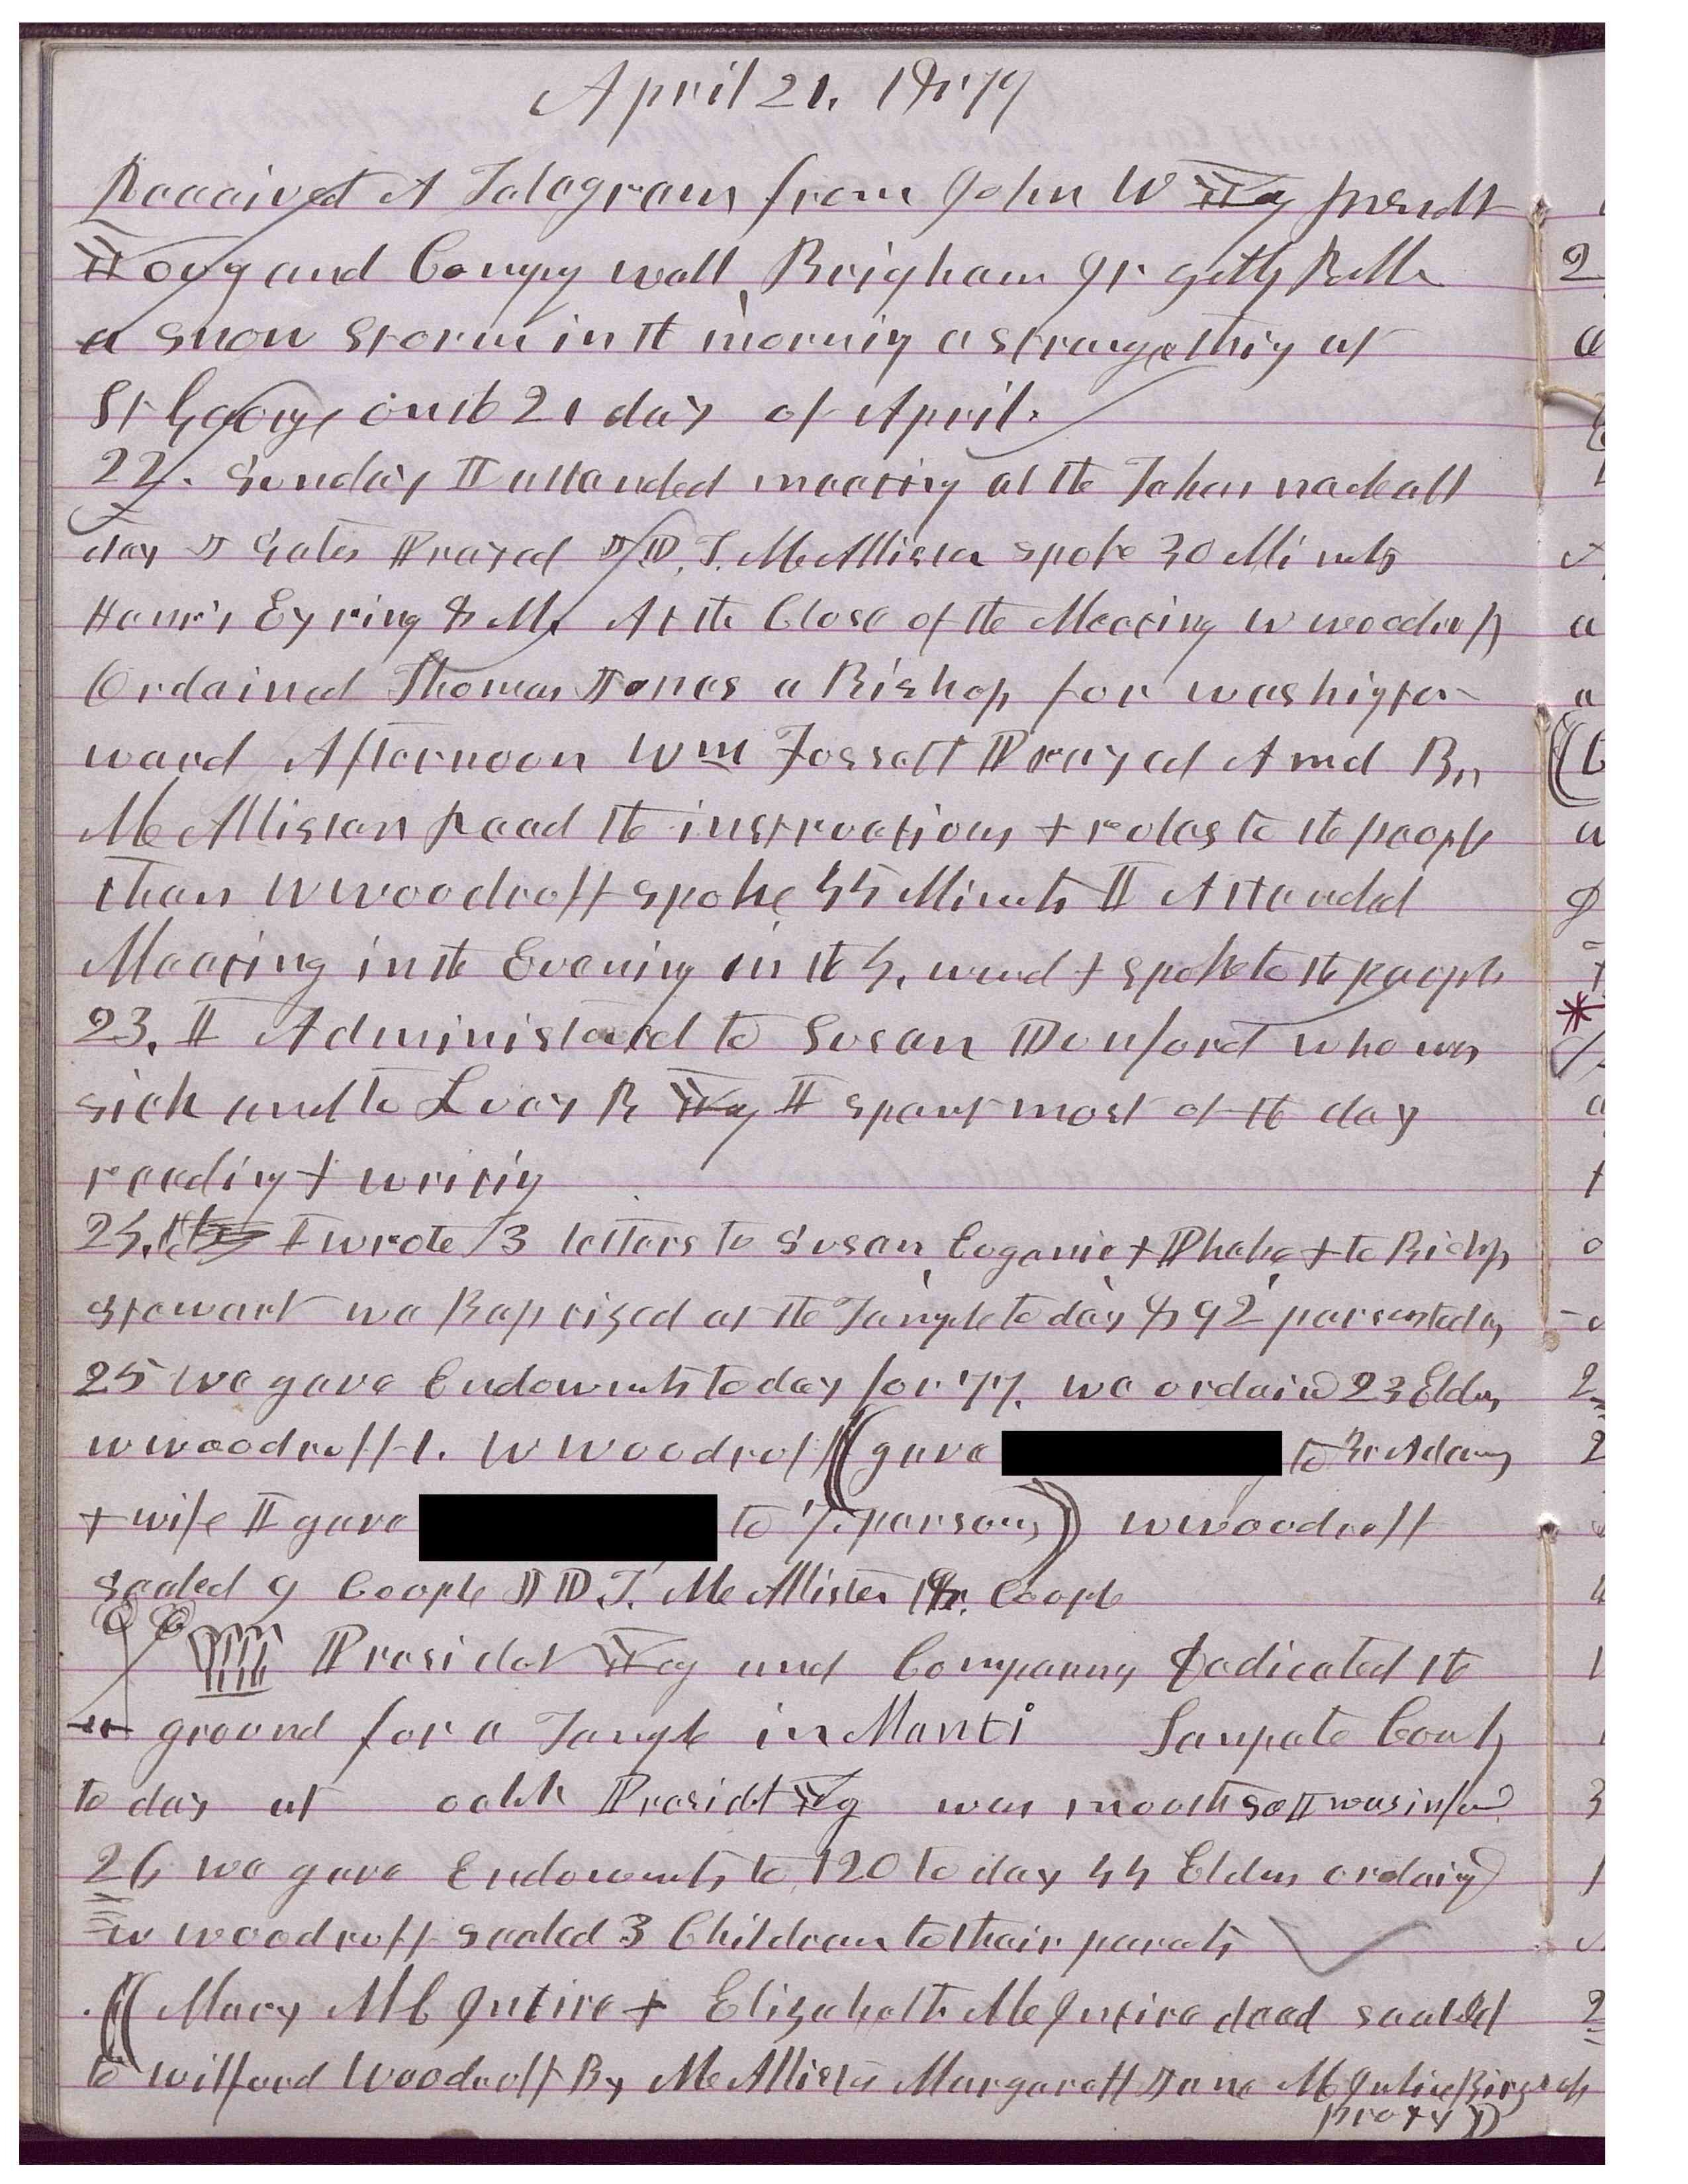 April 21. 1877
Received A Telegram from John W Yg presidt
Young and Compny well, Brigham Jr getty Bettr
a snow storm in th morning a strange thing at
St George on th 21 day of April.
22. Sunday I attended meeting at the Tabernacle all
day J Gates Prayed J D. T. McAllister spoke 30 Minuts
Henry Eyring 8 M. At the Close of the Meeting W Woodruff
Ordained Thomas Jones a Bishop for Washington
ward Afternoon Wm Fossett Prayed And Br
McAllister Read the instructions + rules to the people
Then W Woodruff spoke 45 Minuts I Attended
Meeting in the Evening in the 4. ward + spoke to the people
23. I Administered to Susan Dunford who was
sick and to Lucy B Yg I spent most of the day
reading + writing
24. I wrote 3 letters to Susan, Eugenie + Phebe, + to Bishp
Stewart we Baptized at the Temple to day 892
25 We gave Endowments to day for 77. we ordaind 23 Elders
W Woodruff 1. W Woodruff ((gave to Br Adams
+ wife I gave to 7. persons)) W Woodruff
sealed 9 Couple J D. T. McAllister 18. Couple
Presidet Yg and Company Dedicated the
ground for a Temple in Manti Sanpete County
to day at oclok Presidt Yg was mouth so I was infmd
26 we gave Endowments to 120 to day 44 Elders ordaind
W Woodruff sealed 3 Children to their parents
((Mary McIntire + Elizabeth McIntire dead sealed
to Wilford Woodruff By McAllister Margarett Jane McIntire
proxy))